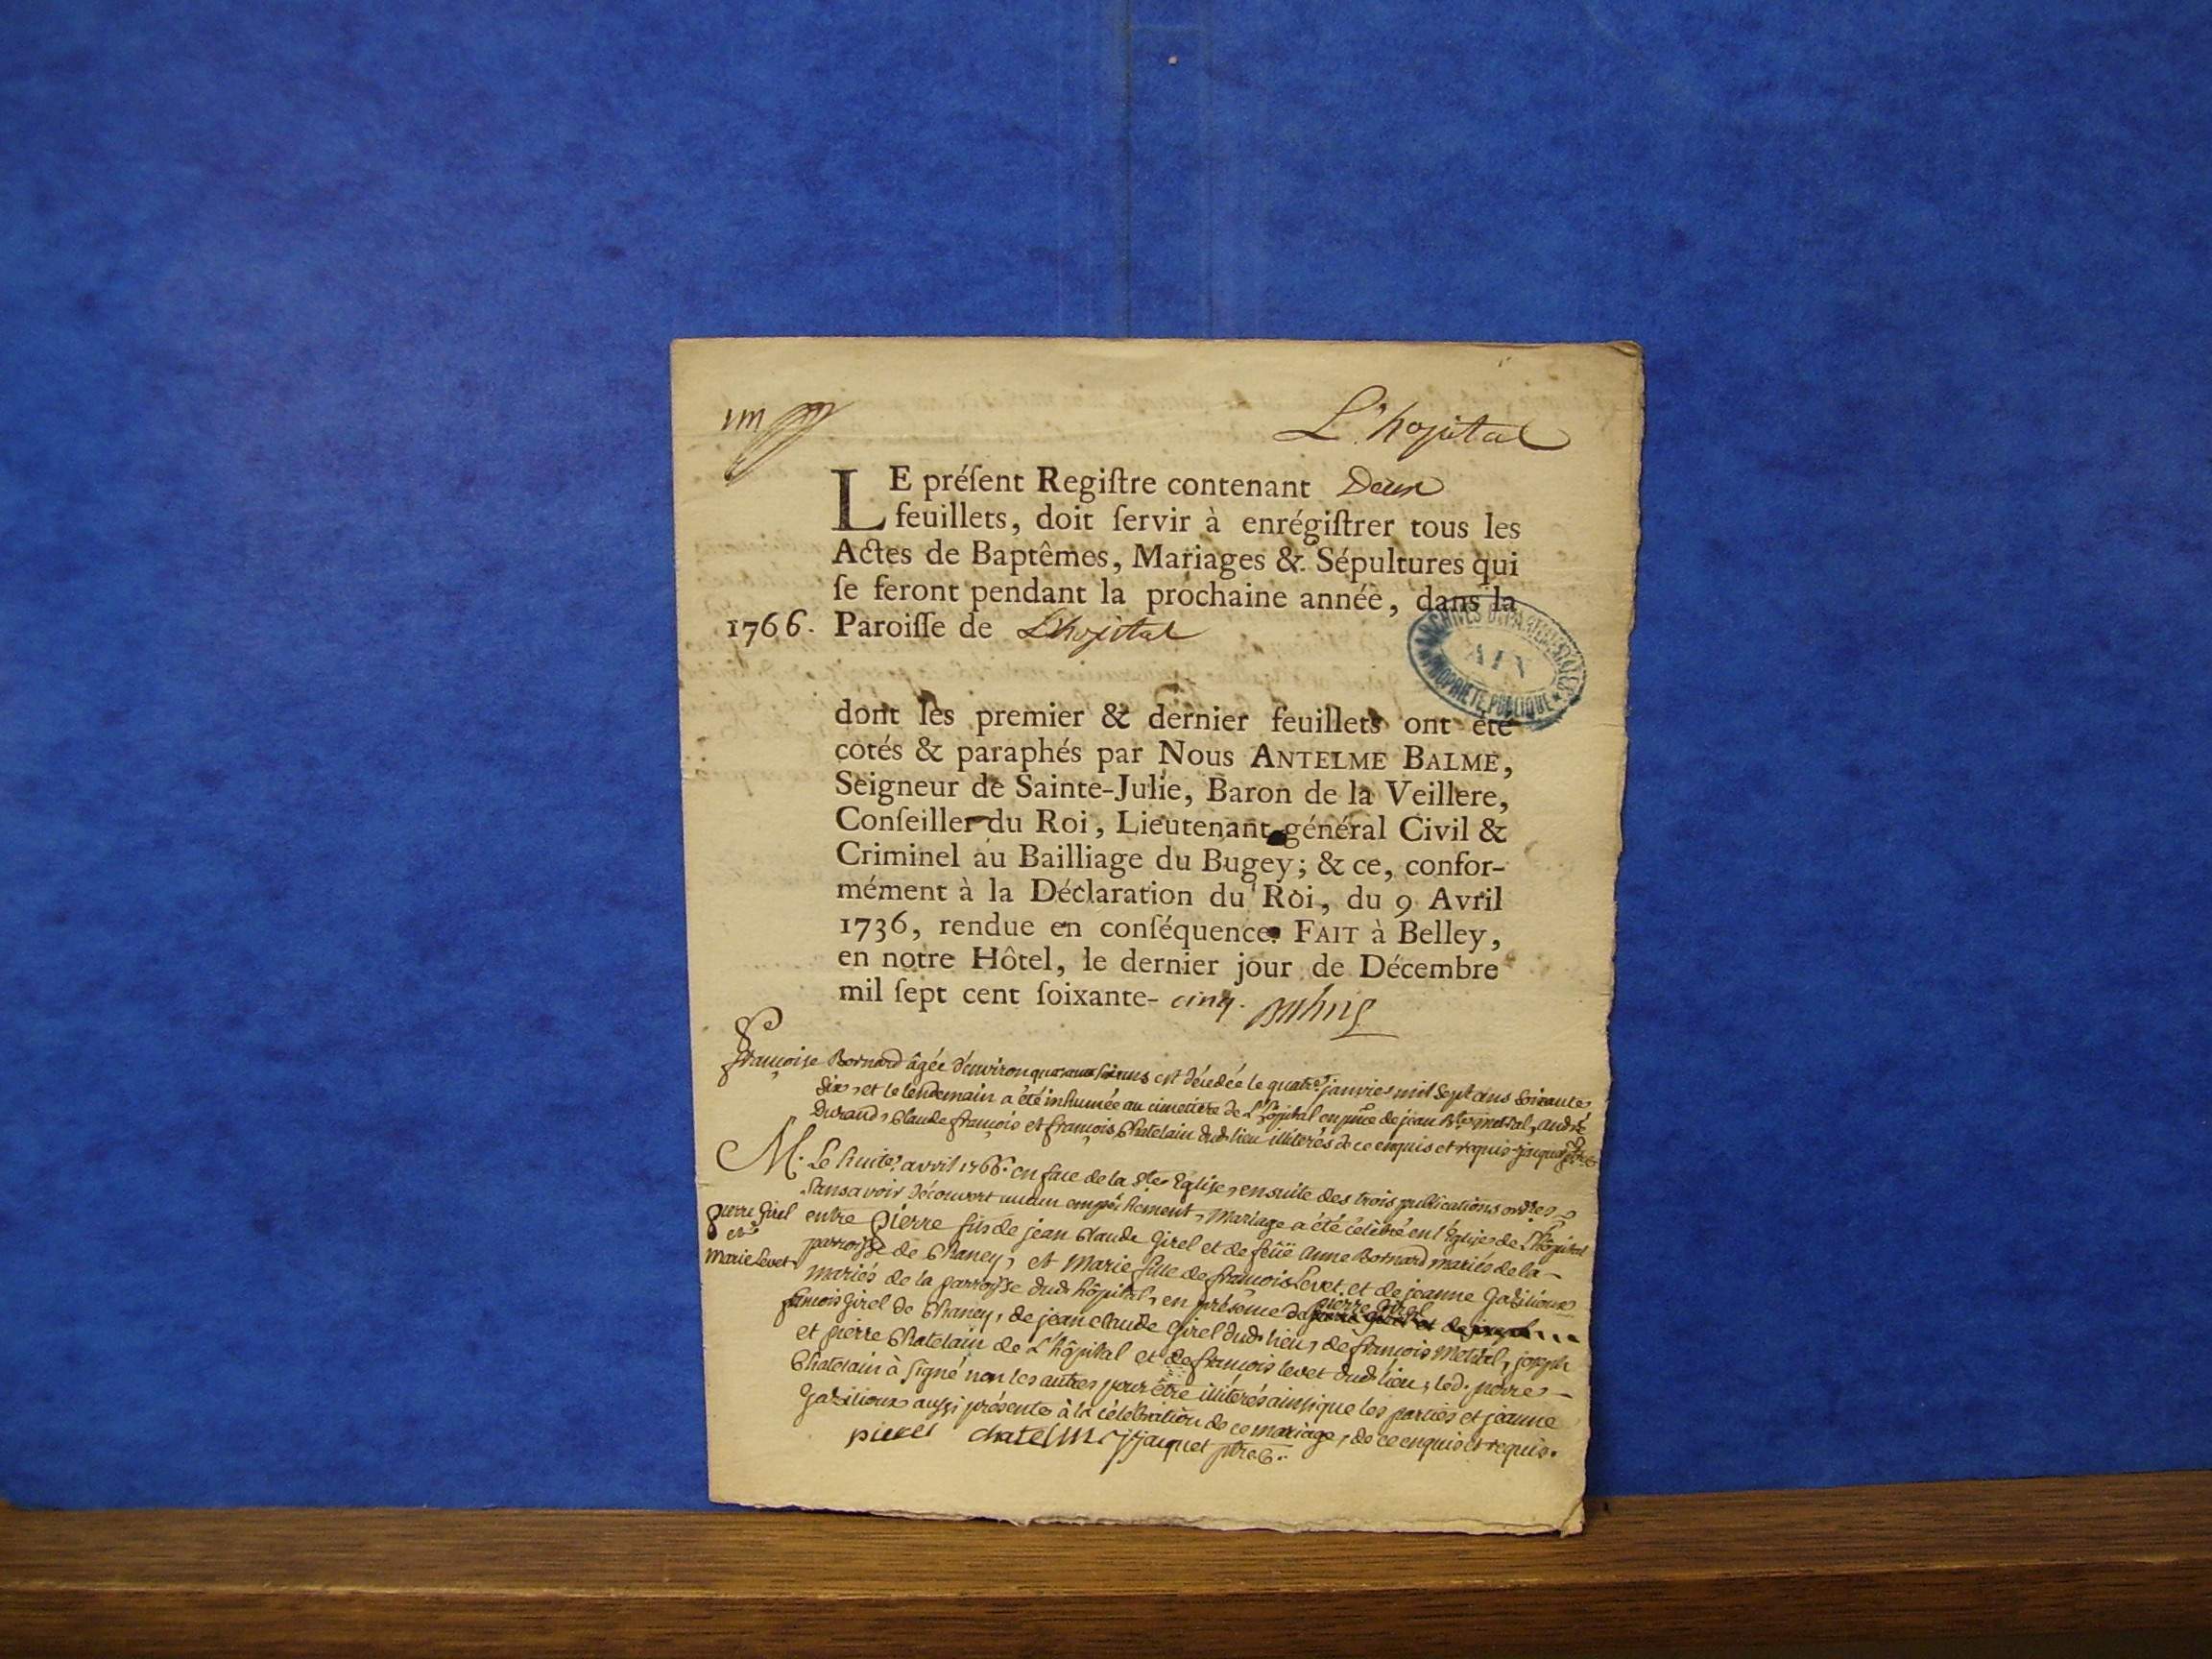 1m
L'hopital
LE préſent Regiſtre contenant Deux
feuillets, doit ſervir à enrégiſtrer tous les
Actes de Baptêmes, Mariages & Sépultures qui
ſe feront pendant la prochaine année, dans la
1766. Paroiſſe de L'hopital
ARCHIVES DÉPARTEMENTALES
AIN
PROPRIÉTÉ PUBLIQUE
dont les premier & dernier feuillets ont été
cotés & paraphés par Nous ANTELME BALME,
Seigneur de Sainte-Julie, Baron de la Veillere,
Conſeiller du Roi, Lieutenant général Civil &
Criminel au Bailliage du Bugey; & ce, confor-
mément à la Déclaration du Roi, du 9 Avril
1736, rendue en conſéquence. FAIT à Belley,
en notre Hôtel, le dernier jour de Décembre
mil ſept cent ſoixante- cinq. Balme
S
françoise Bornard âgée d'environ ans est décedée le quatre janvier mil sept cens soixante
six, et le lendemain a été inhumée au cimetiere de L'hôpital en pnce de jean Bte mettral, andré
Durand, Claude françois et françois Chatelain dud. lieu illiterés de ce enquis et requis. jacquet ptre C
M. Le huite avril 1766. en face de la Ste Eglise, ensuite des trois publications ordres
sans avoir découvert aucun empêchement, Mariage a été célébré en l'Eglise de L'hôpital
pierre Girel entre pierre fils de jean Claude Girel et de feüe anne Bornard mariés de la
et parroisse de Chaney, et Marie fille de françois Levet et de jeanne Gazilioux
Marie Levet mariés de la parroisse dud. hôpital, en présence de pierre Girel
françois Girel de Chaney, de jean claude Girel dud. lieu, de françois Mettral, joseph
et pierre Chatelain de L'hôpital et de françois levet dud. lieu; led. pierre
Chatelain à signé non les autres pour être illitérés ainsi que les parties et jeanne
Gazilioux aussi présente à la célébration de ce mariage, de ce enquis et requis.
pierel chatelin jacquet ptre C.